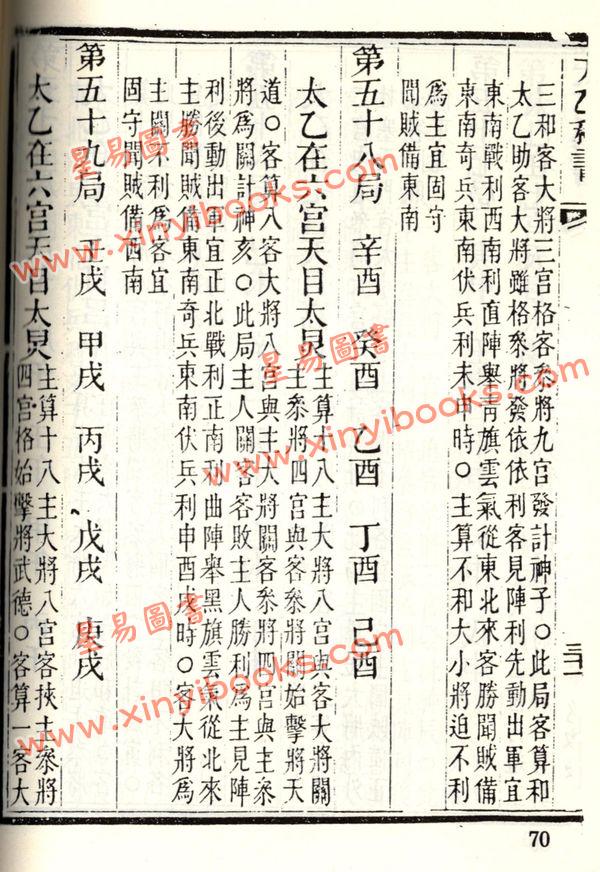 三和客大將三宮格客參將九宮發計神子○此局客算和
太乙助客大將雖格參將發依依利客見陣利先動出軍宜
東南戰利西南利直陣舉青旗雲氣從東北來客勝聞賊備
東南奇兵東南伏兵利未申時○主算不和大小將迫不利
為主宜固守
聞賊備東南
第五十八局 辛酉 癸酉 乙酉 丁酉 己酉
太乙在六宮天目太炅主算十八主大將八宮與客大將關
主參將四宮與客參將關始擊將天
道○客算八客大將八宮與主大將關客參將四宮與主參
將為關計神亥○此局主人關客客敗主人勝利為主見陣
利後動出軍宜正北戰利正南利曲陣舉黑旗雲氣從北來
主勝聞賊備東南奇兵東南伏兵利申酉戌時○客大將為
主關不利為客宜
固守聞賊備西南
第五十九局 壬戌 甲戌 丙戌 戊戌 庚戌
太乙在六宮天目太炅主算十八主大將八宮客挾主參將
四宮格始擊將武德○客算一客大
三十一
70
星易圖書
www.xinyibooks.com
星易圖書
www.xinyibooks.com
星易圖書
www.xinyibooks.com